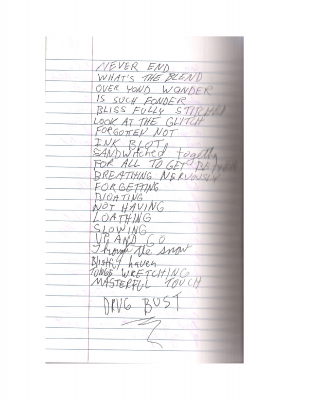 NEVER END
WHAT'S THE BLEND
OVER YOND WONDER
IS SUCH FONDER
BLISS FULLY
LOOK AT THE GLITCH
FORGOTEN NOT
INK BLOT,
SANDWACHED together
FOR ALL TO GET
BREATHING NERVOUSLY
FORGETTING
NOT HAVING
LOATHING
SLOWING
UP AND GO
Through the snow
haven
WRETCHING
MASTERFUL TOUCH
DRUG BUST